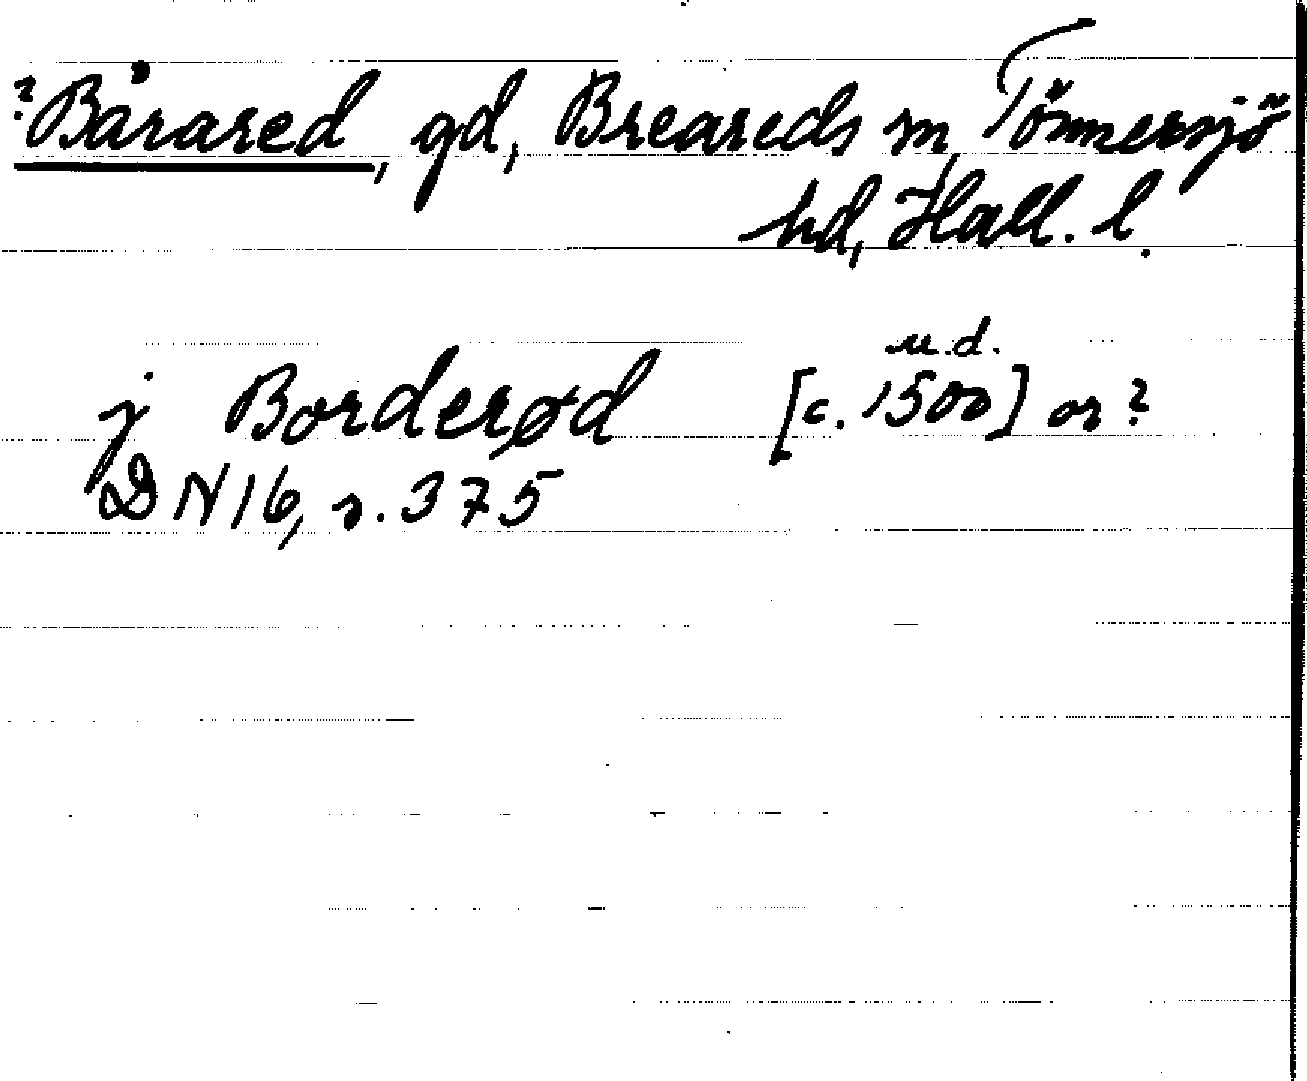 ?Bårared, gd, Breareds sn, Tönnersjö
hd, Hall. l.
u.d.
j Borderød [c. 1500] or?
DN 16, s. 375